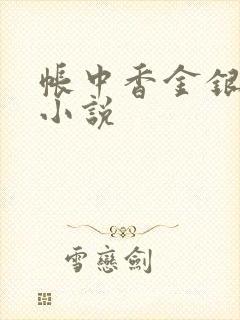 帳中香金銀
小説
雪戀劍